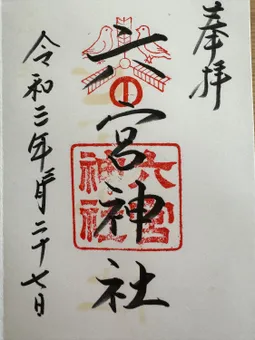 奉拝
六宮神社
六宮
神社
令和三年一月二十七日